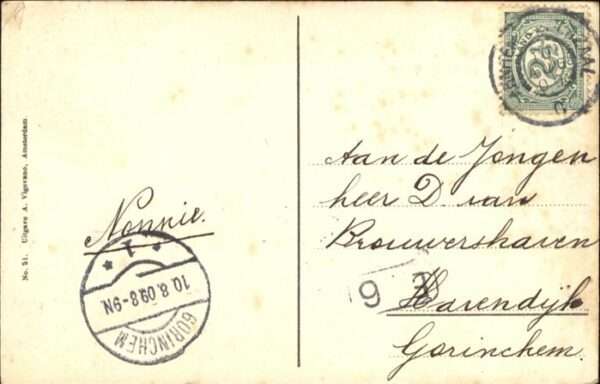 No. 51. Uitgave A. Vigevano, Amsterdam.
Nonnie.
1
10.8.09 8-9N.
GORINCHEM
2½
Aan de Jongen
heer D van
Brouwershaven
Havendijk
Gorinchem.
9